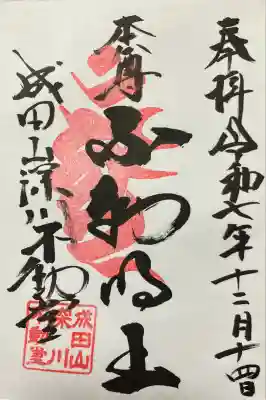 奉拝 令和七年十二月十四日
本尊
不動明王
成田山深川不動堂
成田山
深川
不動堂